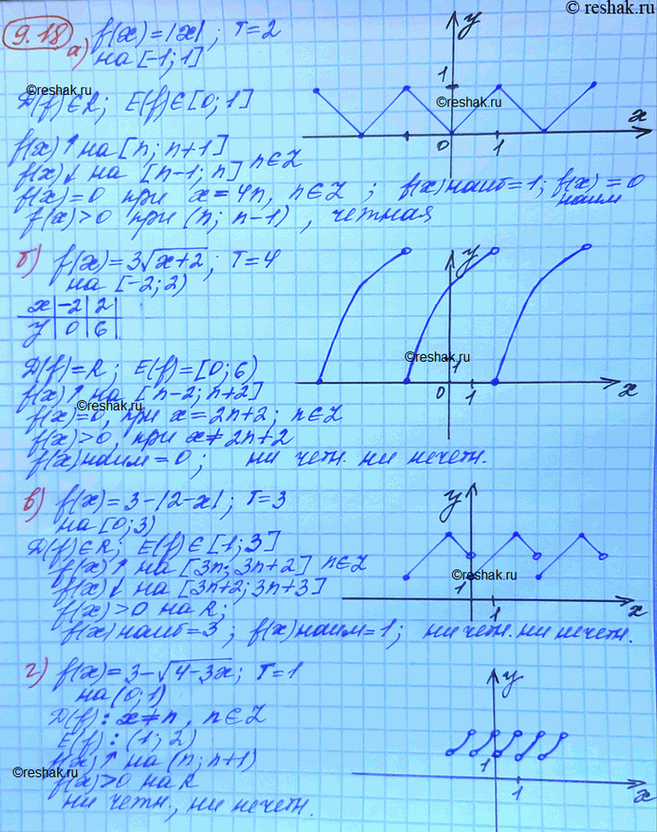 © reshak.ru
9.18 а) f(x) = |x| ; T=2
на [-1; 1]
©reshak.ru
D(f)∈R; E(f)∈[0; 1]
f(x)↑ на [n; n+1]
f(x)↓ на [n-1; n] n∈Z
f(x)=0 при x=4n, n∈Z ; f(x)наиб=1; f(x)наим=0
f(x)>0 при (n; n-1) , четная
y
1
©reshak.ru
0 1 x
б) f(x)=3√x+2; T=4
на [-2; 2)
x | -2 | 2 |
y | 0 | 6 |
D(f)=R; E(f)=[0; 6)
f(x)↑ на [n-2; n+2]
©reshak.ru
f(x)=0, при x=2n+2; n∈Z
f(x)>0, при x≠2n+2
f(x)наим=0; ни четн. ни нечетн.
y
©reshak.ru
1
0 1 x
в) f(x)=3-|2-x| ; T=3
на [0; 3)
D(f)∈R; E(f)∈[1; 3]
f(x)↑ на [3n; 3n+2] n∈Z
f(x)↓ на [3n+2; 3n+3]
f(x)>0 на R;
f(x)наиб=3 ; f(x)наим=1; ни четн. ни нечетн.
y
©reshak.ru
1
1 x
г) f(x)=3-√4-3x; T=1
на (0; 1)
D(f): x≠n, n∈Z
E(f): (1; 2)
f(x)↑ на (n; n+1)
©reshak.ru
f(x)>0 на R
ни четн., ни нечетн.
y
1
1 x